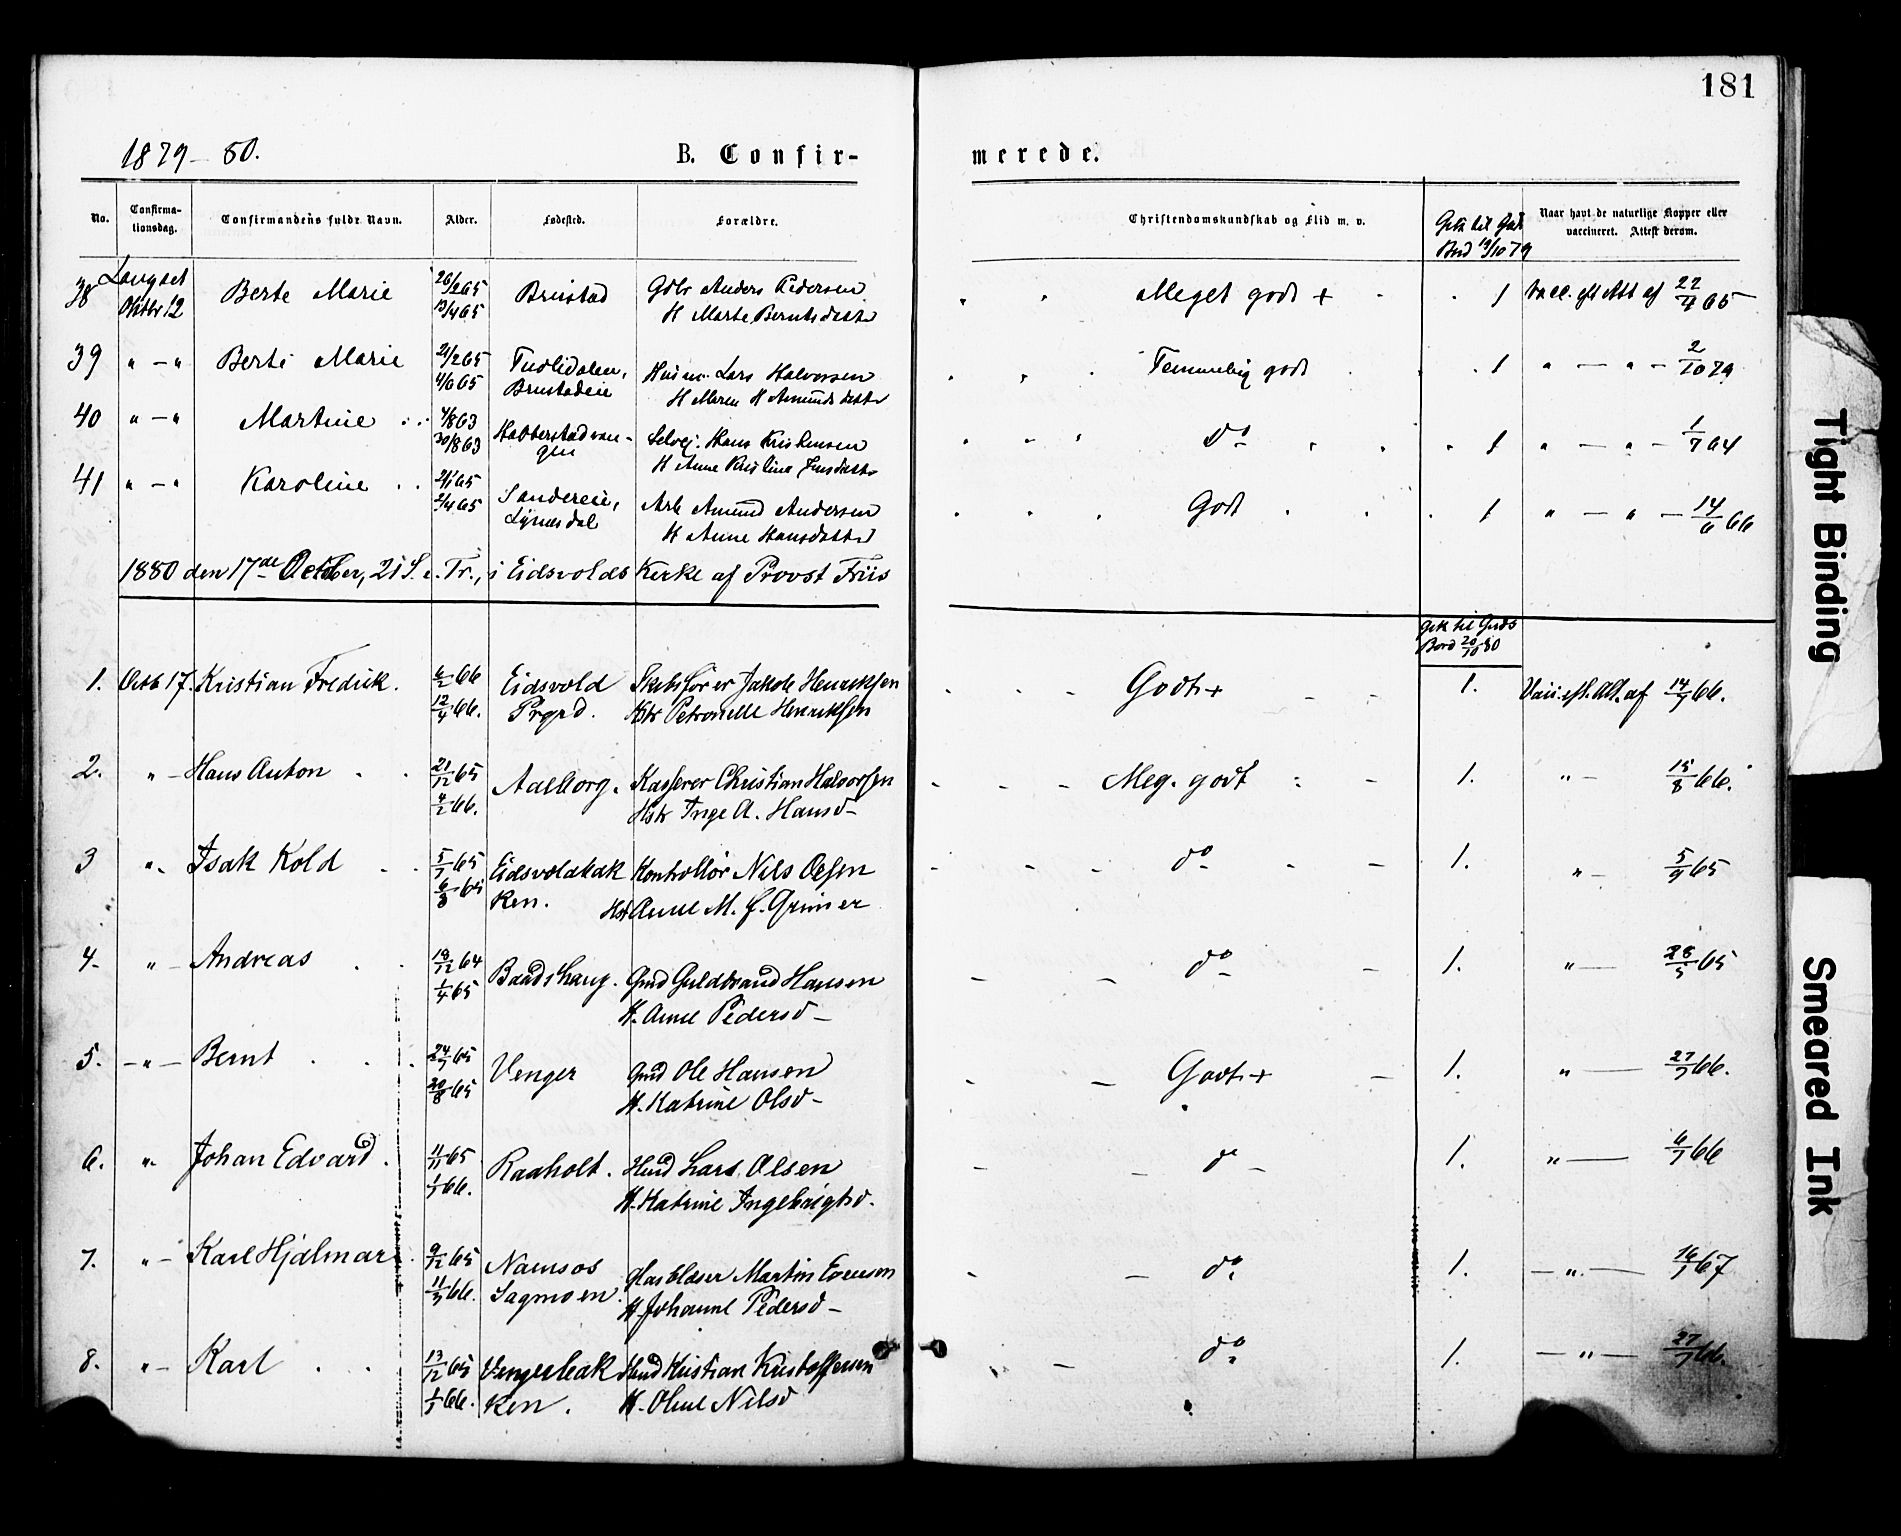 181
1879-80. B. Confir- merede.
No. Confirma-tionsdag. Confirmandens fulde Navn. Alder. Fødested. Forældre. Christendomskundskab og Flid m. v. Naar havt de naturlige Kopper eller vaccineret. Attest derom.
Gik til Guds
Bord 19/10 79
38 Langset Berte Marie 26/2 65 Brustad Gdbr Anders Pedersen Meget godt + 1 Vacc. eft Att af 22/4 65
Oktbr 12 13/4 65 H Marte Berntsdatter
39 " - " Berte Marie 21/2 65 Husm. Lars Halvorsen Temmelig godt 1 " - " - 2/10 79
4/6 65 Brustadeie H Maren H Amundsdatter
40 " - " Martine 4/8 63 Selvej. Hans Kristensen do 1 " - " - 1/7 64
30/8 63 gen H Anne Kristine Jensdatter
41 " - " Karoline 2/1 65 Sandereie, Arb Amund Andersen Godt 1 " - " - 14/6 66
2/4 65 Lynesdal H Anne Hansdatter
1880 den 17de October, 21 S. e. Tr., i Eidsvolds Kirke af Provst Friis
Gik til Guds
Bord 20/10 80
1. Octb 17. Kristian Fredrik. 6/2 66 Eidsvold Skibsfører Jakob Henriksen Godt + 1. Vacc. eft. Att. af 14/7 66.
12/4 66. Prgrd. Hstr Petronelle Henriksen
2. " - Hans Anton 21/12 65 Aalborg. Kasserer Christian Halvorsen Meg. godt 1. " - 15/8 66.
4/2 66. Hstr Inge A. Hansd-
3 " - Isak Kold 5/7 65 Eidsvoldbak Kontrollør Nils Olsen do 1. " - 5/9 65
6/8 65 ken. Hst Anne M. f. Grüner
4. " - Andreas 18/12 64 Baadshaug. Gmd Guldbrand Hansen do 1. " - 28/5 65
1/4 65 H. Anne Pedersd-
5. - " - Bernt 24/7 65 Venger Gmd Ole Hansen Godt + 1. " - 27/7 66.
20/8 65 H. Katrine Olsd-
6. " - Johan Edvard. 11/11 65 Raaholt. Hmd Lars Olsen do 1. " - 6/7 66
1/1 66. H. Katrine Ingebrigtsd.
7. " - Karl Hjalmar 9/12 65 Namsos Glasblæser Martin Evensen do 1. - " - 16/7 67
11/3 66. Sagmoen. H. Johanne Pedersd-
8. " - Karl 13/12 65 Vengerbak Hmd Kristian Kristoffersen do 1. - " - 27/7 66.
1/1 66. ken. H. Oline Nilsd
Tight Binding
Smeared Ink